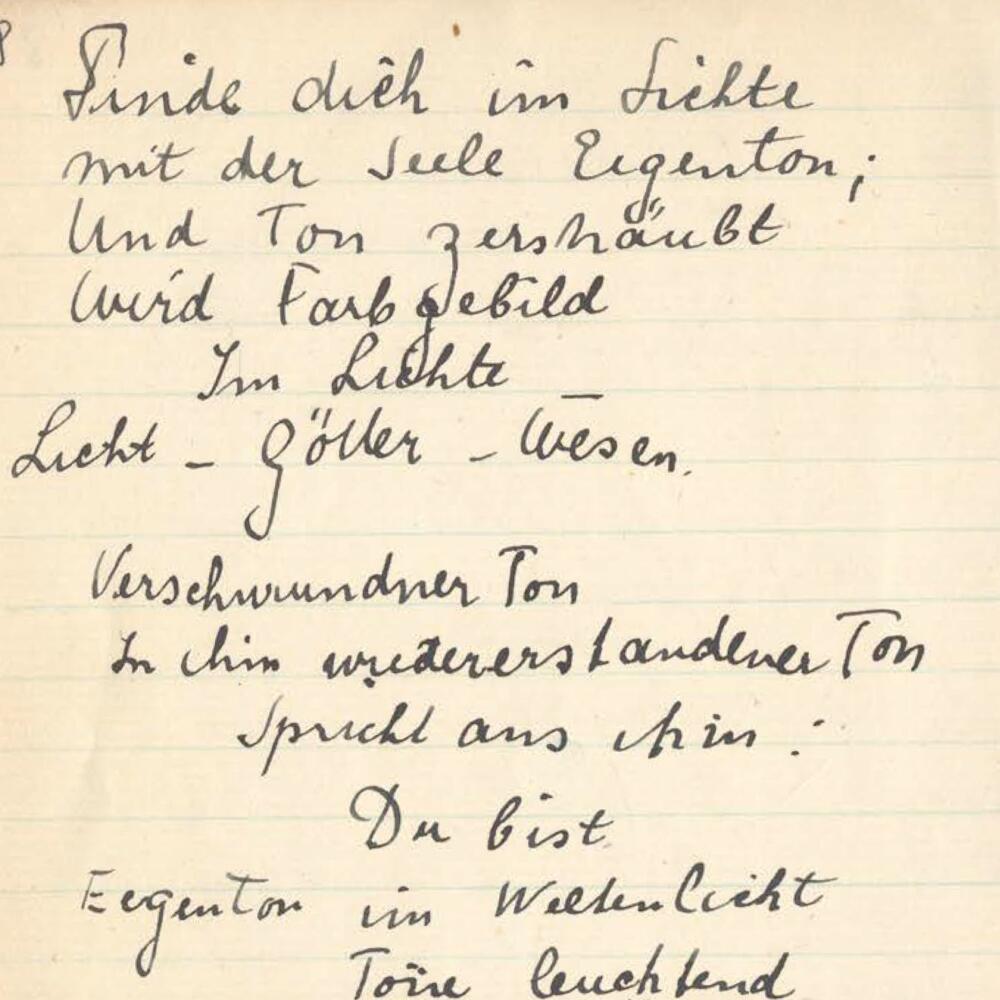 Finde dich im Lichte
mit der Seele Eigenton;
Und Ton zerstäubt
Wird Farbgebild
Im Lichte
Licht - Götter - Wesen.
Verschwundner Ton
In ihm wiedererstandener Ton
Spricht aus ihm:
Du bist
Eigenton im Weltenlicht
Töne leuchtend